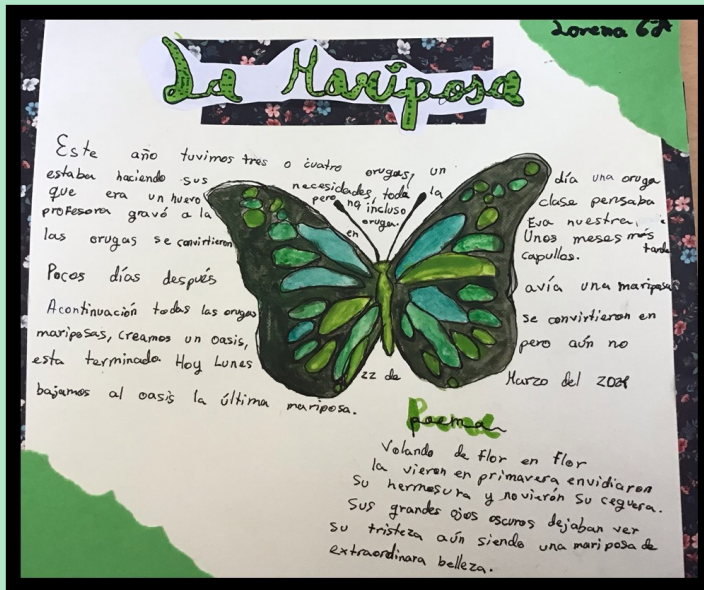 Lorena 6ºA
La Mariposa
Este año tuvimos tres o cuatro orugas, un día una oruga
estaba haciendo sus necesidades, toda la clase pensaba
que era un huevo pero no, incluso Eva nuestra
profesora gravó a la oruga. Unos meses más tarde
las orugas se convirtieron en capullos.
Pocos días después avía una mariposa
Acontinuación todas las orugas se convirtieron en
mariposas, creamos un oasis, pero aún no
esta terminado Hoy Lunes 22 de Marzo del 2021
bajamos al oasis la última mariposa.
Poema
Volando de flor en flor
la vieron en primavera envidiaron
su hermosura y no vieron su ceguera.
Sus grandes ojos oscuros dejaban ver
su tristeza aún siendo una mariposa de
extraordinara belleza.